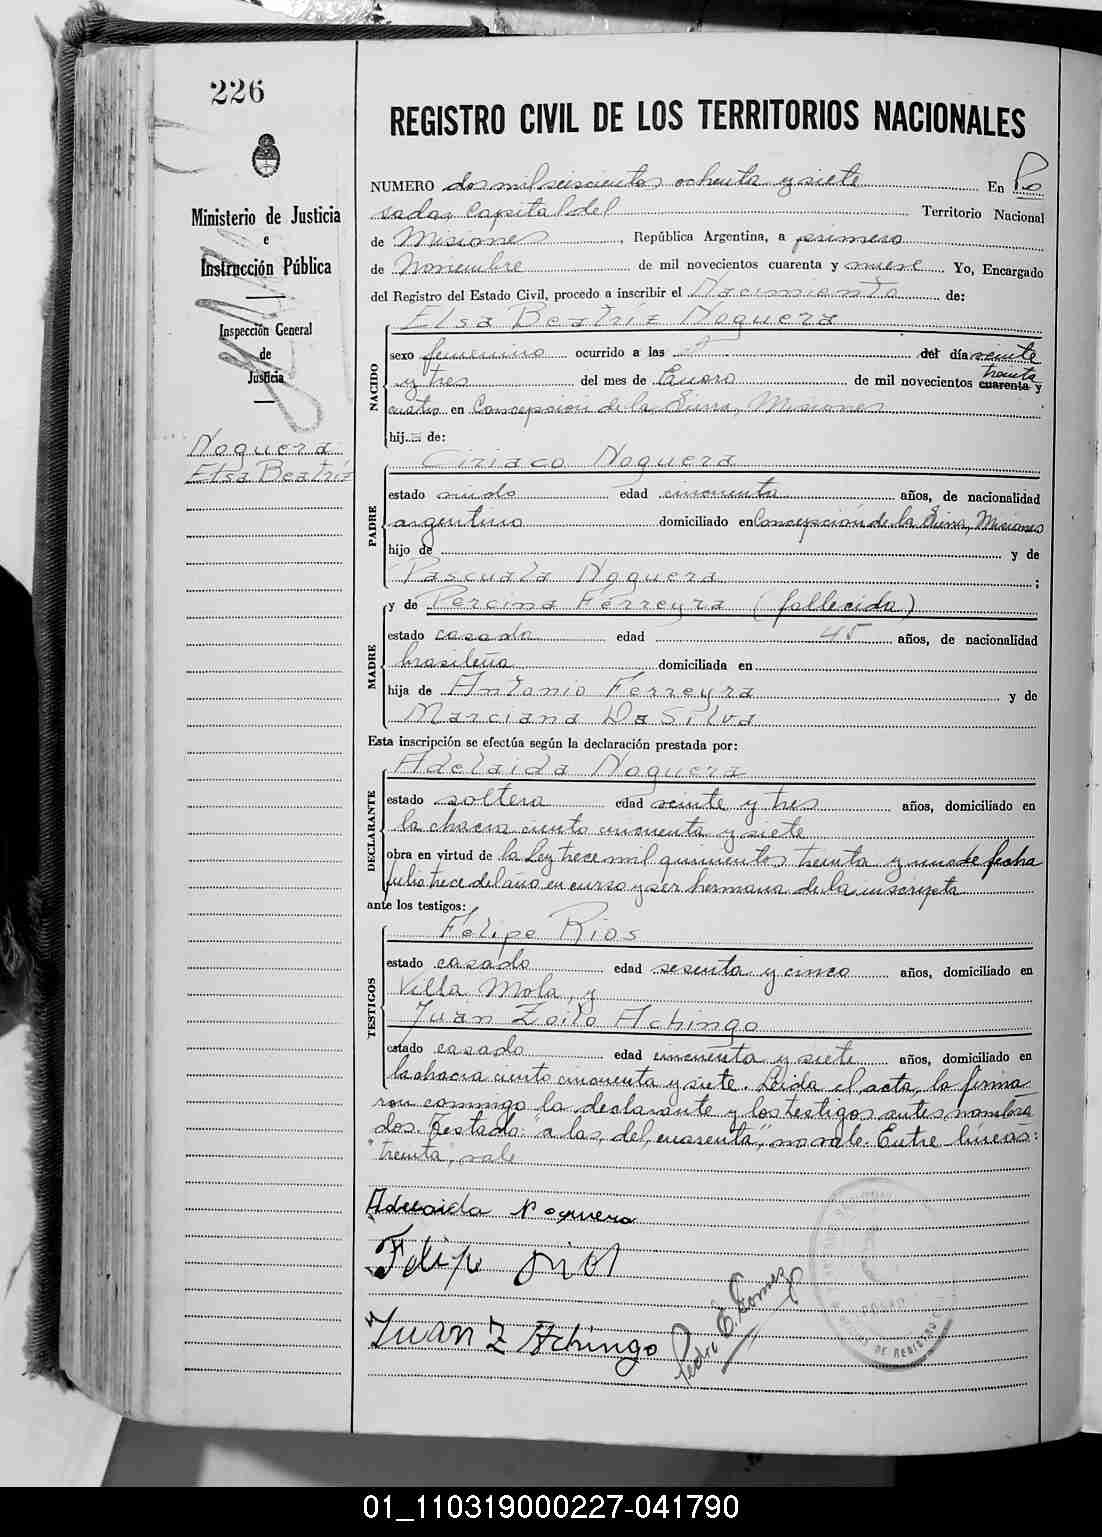 226
REGISTRO CIVIL DE LOS TERRITORIOS NACIONALES
Ministerio de Justicia
e
Instrucción Pública
Inspección General
de
Justicia
Noguera
Elsa Beatríz
NUMERO dos mil seiscientos ochenta y siete En Po
sadas Capital del Territorio Nacional
de Misiones, República Argentina, a primero
de Noviembre de mil novecientos cuarenta y nueve Yo, Encargado
del Registro del Estado Civil, procedo a inscribir el Nacimiento de:
NACIDO
Elsa Beatríz Noguera
sexo femenino ocurrido a las del día veinte
y tres del mes de Enero de mil novecientos cuarenta treinta y
cuatro en Concepción de la Sierra, Misiones
hij de:
PADRE
Ciriaco Noguera
estado viudo edad cincuenta años, de nacionalidad
argentino domiciliado en Concepción de la Sierra, Misiones
hijo de y de
Pascuala Noguera ;
MADRE
y de Percina Ferreyra (fallecida)
estado casada edad 45 años, de nacionalidad
brasileña domiciliada en
hija de Antonio Ferreyra y de
Marciana Da Silva
Esta inscripción se efectúa según la declaración prestada por:
DECLARANTE
Adelaida Noguera
estado soltera edad veinte y tres años, domiciliado en
la chacra ciento cincuenta y siete
obra en virtud de la Ley trece mil quinientos treinta y nueve de fecha
julio trece del año en curso y ser hermana de la inscripta
ante los testigos:
TESTIGOS
Felipe Rios
estado casado edad sesenta y cinco años, domiciliado en
Villa Mola, y
Juan Zoilo Achingo
estado casado edad cincuenta y siete años, domiciliado en
la chacra ciento cincuenta y siete. Leida el acta, la firma
ron conmigo la declarante y los testigos antes nombra
dos. Testado: "a las, del, cuarenta", no vale. Entre líneas:
"treinta", vale
Adelaida Noguera
Felipe Rios
Juan Z Achingo
Pedro E. Gomez
DE REGISTRO
01_110319000227-041790